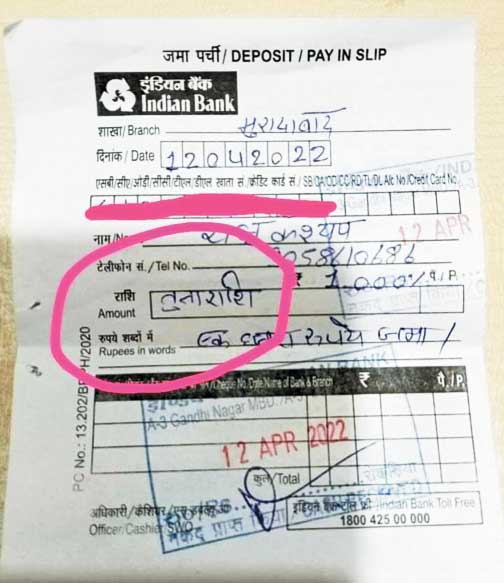 जमा पर्ची / DEPOSIT / PAY IN SLIP
इंडियन बैंक
Indian Bank
शाखा/ Branch मुरादाबाद
दिनांक / Date 12042022
एसबी/सीए/ओडी/सीसी/टीएल/डीएल खाता सं./क्रेडिट कार्ड सं. / SB/CA/OD/CC/RD/TL/DL A/c No./Credit Card No.
नाम/ कश्यप
12 APR
टेलीफोन सं./Tel No.
राशि ₹ 1000
Amount तुलाराशि
रुपये शब्दों में एक हजार रुपये जमा /
Rupees in words
Cheque No. Date Name of Bank & Branch ₹ पै./P.
A-3 Gandhi Nagar MBD.
12 APR 2022
कुल/Total
अधिकारी/कैशियर/एस
Officer/Cashier/SWO
Indian Bank Toll Free
1800 425 00 000
PC No.: 13.202/
/2020